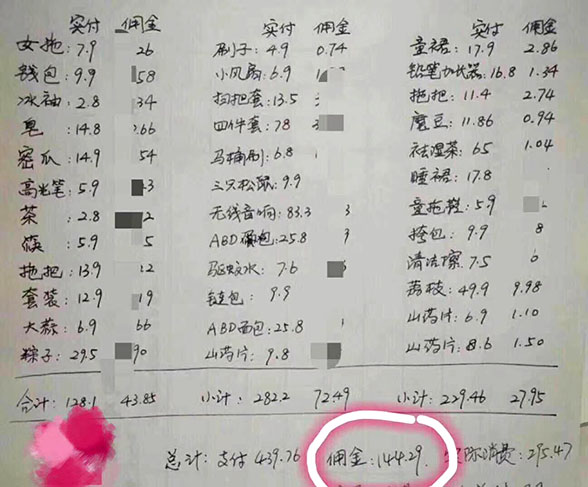 实付 佣金 实付 佣金 实付 佣金
女拖: 7.9 26 刷子: 4.9 0.74 童裙: 17.9 2.86
钱包: 9.9 58 小风扇: 6.9 铅笔加长器: 16.8 1.34
冰袖: 2.8 34 扫把套: 13.5 拖把: 11.4 2.74
皂: 14.8 66 四件套: 78 魔豆: 11.86 0.94
密瓜: 14.9 54 马桶刷: 6.8 祛湿茶: 65 1.04
高光笔: 5.9 3 三只松鼠: 9.9 睡裙: 17.8
茶: 2.8 2 无线音响: 83.3 3 童拖鞋: 5.9
筷: 5.9 5 ABD面包: 25.8 挎包: 9.9 8
拖把: 13.9 12 驱蚊水: 7.6 清洁擦: 7.5
套装: 12.9 19 链包: 9.9 荔枝: 49.9 9.98
大蒜: 6.9 66 ABD面包: 25.8 山药片: 6.9 1.10
粽子: 29.5 90 山药片: 9.8 山药片: 8.6 1.50
合计: 128.1 43.85 小计: 282.2 72.49 小计: 229.46 27.95
总计: 支付 439.76 佣金: 144.29. 实际消费: 295.47